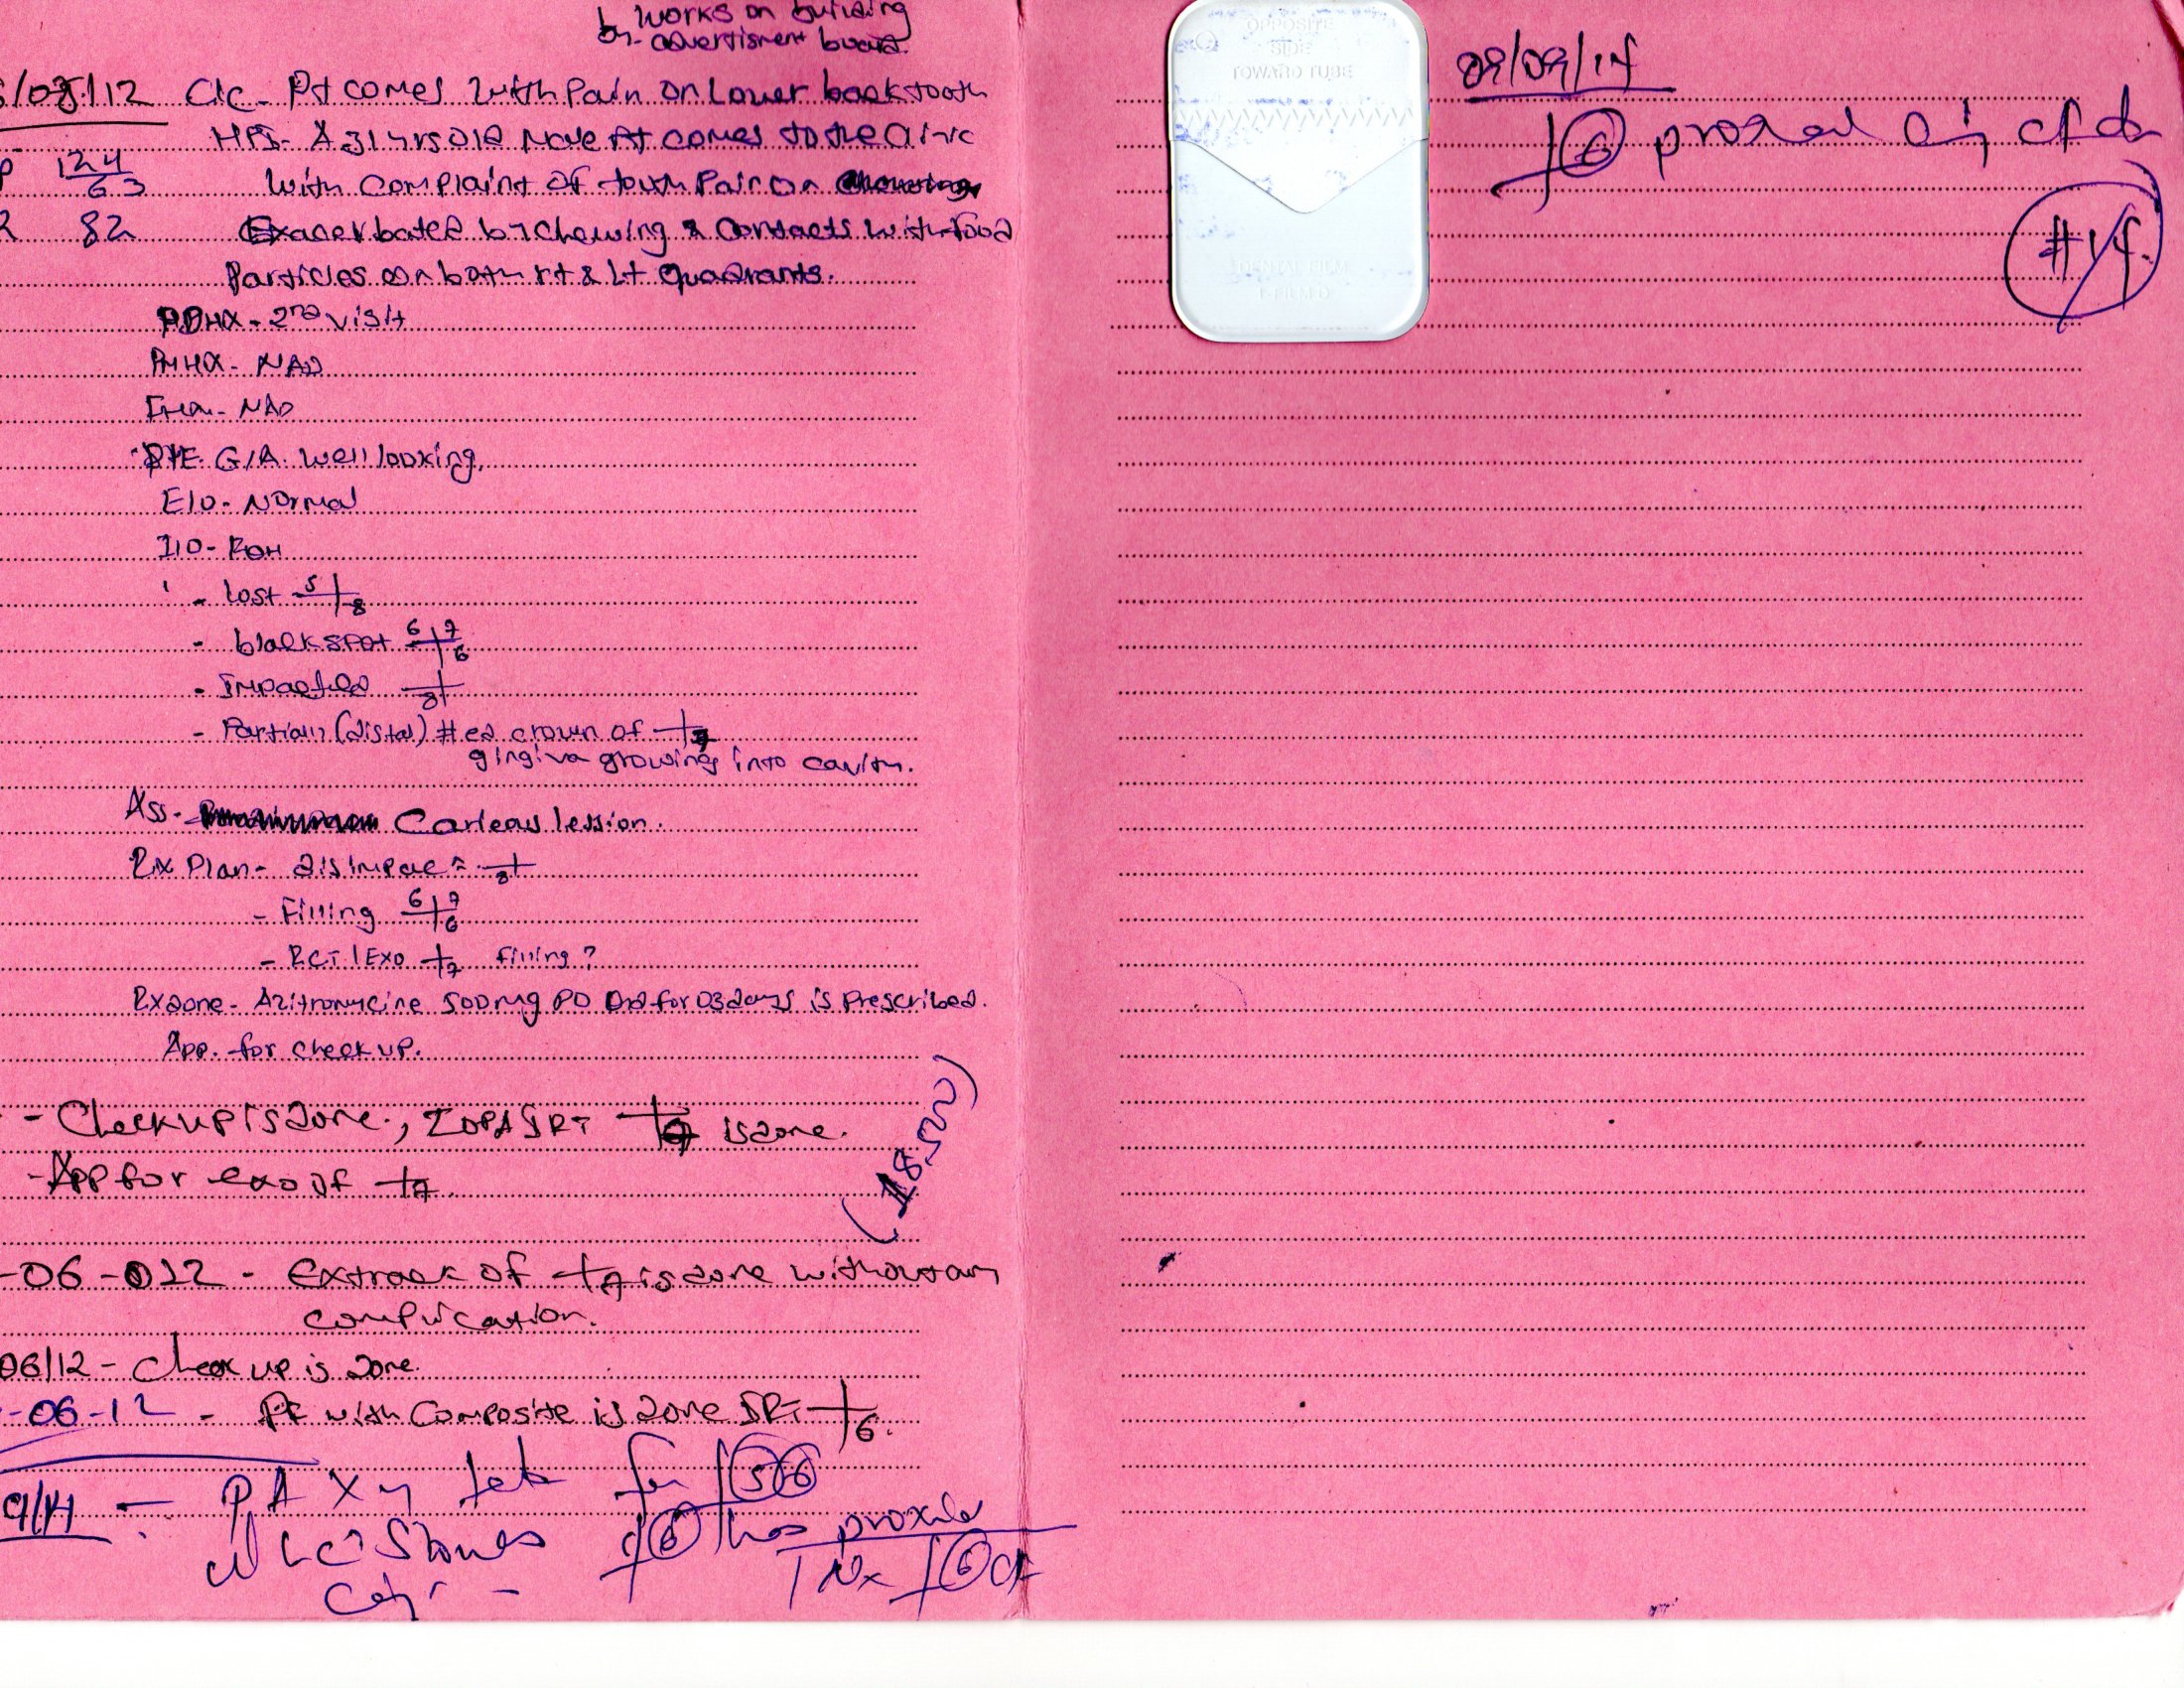 ↳ works on building
advertisment board.
/08/12 C/c - Pt comes with Pain on Lower back tooth
HPI - A 31 yrs old Male Pt comes to the clinic
P 124/63 with complaint of tooth Pain on
R 82 Exacerbated by chewing & contacts with food
Particles on both rt & Lt quadrants.
PDHX - 2nd visit
PMHX - NAD
NAD
P/E. G/A. well looking,
E/O - Normal
I/O - POH
- Lost 5 8
- black spot 6 7 6
- Impacted 8
- Partialy (distal) #ed crown of 7
gingiva growing into cavity.
Ass - Carieaus lession.
Rx Plan - disimpac 8
- Filling 6 7 6
- RCT / Exo 7 filling?
Rx done - Azitromycine 500mg PO for 03 days is Prescribed.
App. for check up.
- Checkup is done., IOPA 7 is done.
- App for exo of 7
(18.500)
-06-012 - Extrac of 7 is done without any
complication.
06/12 - Check up is done.
-06-12 - PF with Composite is done 6.
9/14 - PA X for 5 6
shows 6 has
6
OPPOSITE
SIDE
TOWARD TUBE
DENTAL FILM
09/09/14
6
#14